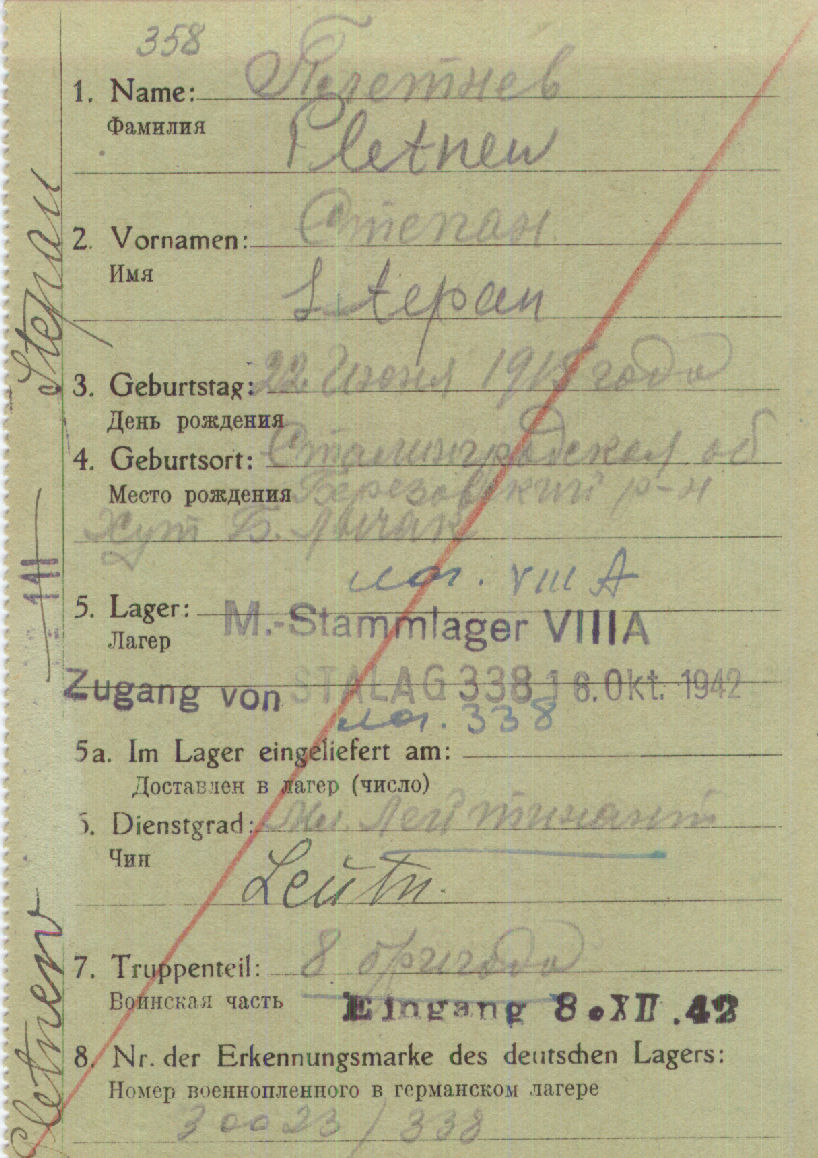 358
1. Name: Плетнев
Фамилия
Pletnew
2. Vornamen: Степан
Имя
Stepan
3. Geburtstag: 22 Июня 1918 года
День рождения
4. Geburtsort: Сталинградская об
Место рождения Березовский р-н
Хут Б. Лычак
лаг. VIII A
5. Lager: M.-Stammlager VIIIA
Лагер
Zugang von STALAG 338 16. Okt. 1942
лаг. 338
5a. Im Lager eingeliefert am:
Доставлен в лагер (число)
6. Dienstgrad: Мл. Лейтинант
Чин
Leutn.
7. Truppenteil: 8 бригада
Воинская часть
Eingang 8. XII. 42
8. Nr. der Erkennungsmarke des deutschen Lagers:
Номер военнопленного в германском лагере
30023 / 338
Pletnew
111
Stepan